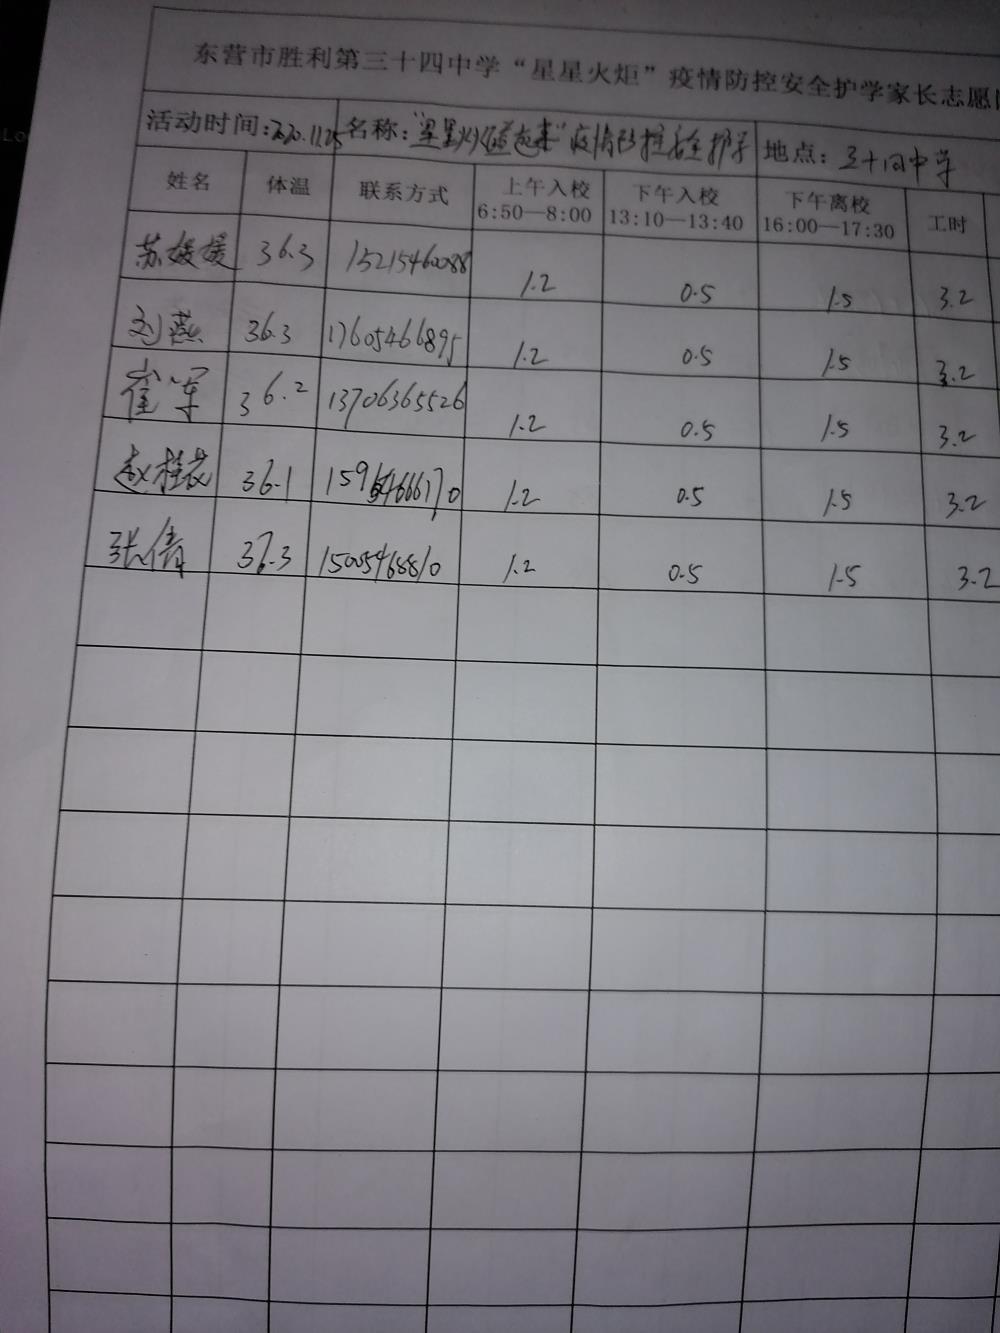 东营市胜利第三十四中学“星星火炬”疫情防控安全护学家长志愿
活动时间:2020.11.25 名称:“星星火炬 疫情防控安全护学 地点:三十四中学
姓名 体温 联系方式 上午入校 6:50—8:00 下午入校 13:10—13:40 下午离校 16:00—17:30 工时
苏媛媛 36.3 15215460088 1.2 0.5 1.5 3.2
刘燕 36.3 17605466895 1.2 0.5 1.5 3.2
崔军 36.2 13706365526 1.2 0.5 1.5 3.2
赵桂花 36.1 1.2 0.5 1.5 3.2
张倩 37.3 15005468810 1.2 0.5 1.5 3.2